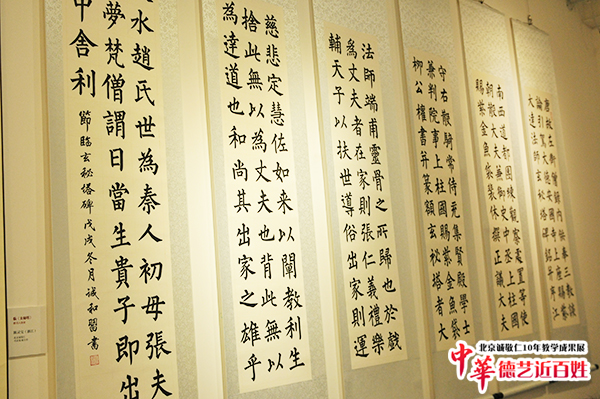 唐故左街僧錄內供奉三教談
論引駕大德安國寺上座賜紫
大達法師玄秘塔碑銘并序江
南西道都團練觀察處置等使
朝散大夫兼御史中丞上柱國
賜紫金魚袋裴休撰正議大夫
守右散騎常侍充集賢殿學士
兼判院事上柱國賜紫金魚袋
柳公權書并篆額玄秘塔者大
法師端甫靈骨之所歸也於戲
為丈夫者在家則張仁義禮樂
輔天子以扶世導俗出家則運
慈悲定慧佐如來以闡教利生
捨此無以為丈夫也背此無以
為達道也和尚其出家之雄乎
水趙氏世為秦人初母張夫
夢梵僧謂曰當生貴子即出
中舍利
節臨玄秘塔碑戊戌冬月誠和習書
北京诚敬仁10年教学成果展
中華德艺近百姓